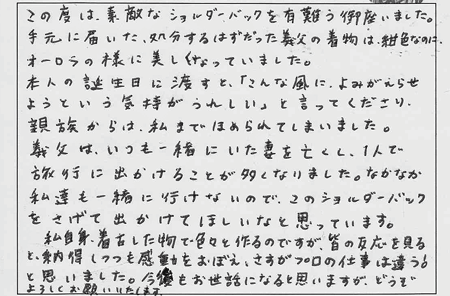 この度は、素敵なショルダーバックを有難う御座いました。
手元に届いた、処分するはずだった義父の着物は、紺色なのに、
オーロラの様に美しくなっていました。
本人の誕生日に渡すと、「こんな風に、よみがえらせ
ようという気持がうれしい」と言ってくださり、
親族からは、私までほめられてしまいました。
義父は、いつも一緒にいた妻を亡くし、1人で
旅行に出かけることが多くなりました。なかなか
私達も一緒に行けないので、このショルダーバック
をさげて出かけてほしいなと思っています。
私自身、着古した物で色々と作るのですが、皆の反応を見る
と、納得しつつも感動をおぼえ、さすがプロの仕事は違う!!
と思いました。今後もお世話になると思いますが、どうぞ
よろしくお願いいたします。